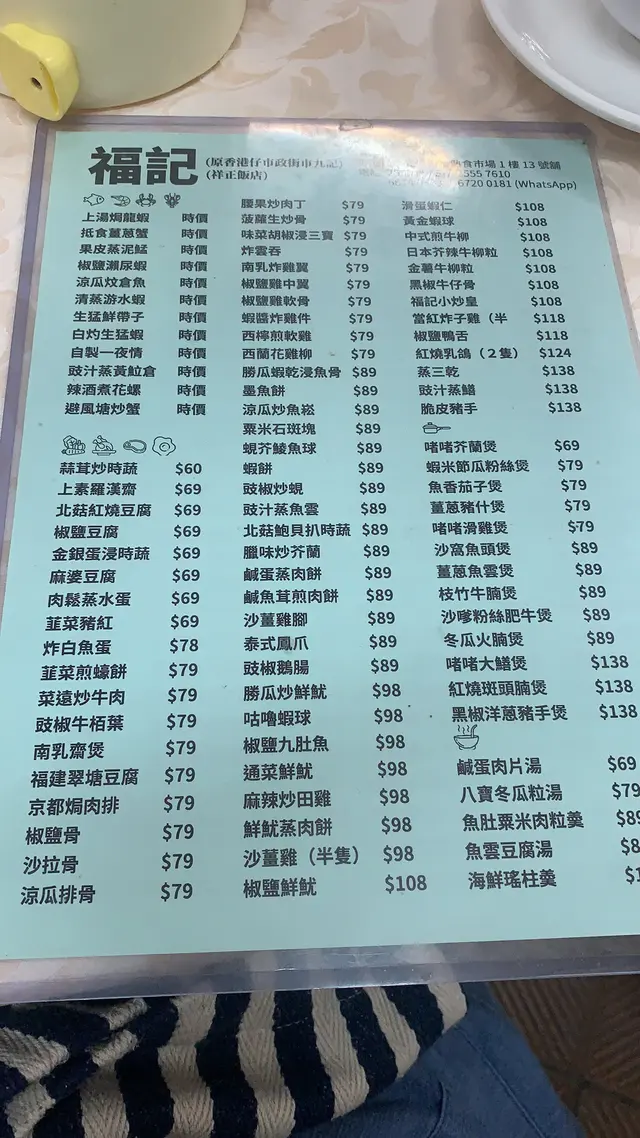 福記
(原香港仔市政街市九記)
(祥正飯店)
食市場 1 樓 13 號舖
555 7610
6720 0181 (WhatsApp)
上湯焗龍蝦 時價
抵食薑蔥蟹 時價
果皮蒸泥鯭 時價
椒鹽瀨尿蝦 時價
涼瓜炆倉魚 時價
清蒸游水蝦 時價
生猛鮮帶子 時價
白灼生猛蝦 時價
自製一夜情 時價
豉汁蒸黃鱲倉 時價
辣酒煮花螺 時價
避風塘炒蟹 時價
蒜茸炒時蔬 $60
上素羅漢齋 $69
北菇紅燒豆腐 $69
椒鹽豆腐 $69
金銀蛋浸時蔬 $69
麻婆豆腐 $69
肉鬆蒸水蛋 $69
韮菜豬紅 $69
炸白魚蛋 $78
韮菜煎蠔餅 $79
菜遠炒牛肉 $79
豉椒牛栢葉 $79
南乳齋煲 $79
福建翠塘豆腐 $79
京都焗肉排 $79
椒鹽骨 $79
沙拉骨 $79
涼瓜排骨 $79
腰果炒肉丁 $79
菠蘿生炒骨 $79
味菜胡椒浸三寶 $79
炸雲吞 $79
南乳炸雞翼 $79
椒鹽雞中翼 $79
椒鹽雞軟骨 $79
蝦醬炸雞件 $79
西檸煎軟雞 $79
西蘭花雞柳 $79
勝瓜蝦乾浸魚骨 $89
墨魚餅 $89
涼瓜炒魚崧 $89
粟米石斑塊 $89
蜆芥鯪魚球 $89
蝦餅 $89
豉椒炒蜆 $89
豉汁蒸魚雲 $89
北菇鮑貝扒時蔬 $89
臘味炒芥蘭 $89
鹹蛋蒸肉餅 $89
鹹魚茸煎肉餅 $89
沙薑雞腳 $89
泰式鳳爪 $89
豉椒鵝腸 $89
勝瓜炒鮮魷 $98
咕嚕蝦球 $98
椒鹽九肚魚 $98
通菜鮮魷 $98
麻辣炒田雞 $98
鮮魷蒸肉餅 $98
沙薑雞（半隻） $98
椒鹽鮮魷 $108
滑蛋蝦仁 $108
黃金蝦球 $108
中式煎牛柳 $108
日本芥辣牛柳粒 $108
金薯牛柳粒 $108
黑椒牛仔骨 $108
福記小炒皇 $108
當紅炸子雞（半 $118
椒鹽鴨舌 $118
紅燒乳鴿（２隻） $124
蒸三乾 $138
豉汁蒸鱔 $138
脆皮豬手 $138
啫啫芥蘭煲 $69
蝦米節瓜粉絲煲 $79
魚香茄子煲 $79
薑蔥豬什煲 $79
啫啫滑雞煲 $79
沙窩魚頭煲 $89
薑蔥魚雲煲 $89
枝竹牛腩煲 $89
沙嗲粉絲肥牛煲 $89
冬瓜火腩煲 $89
啫啫大鱔煲 $138
紅燒斑頭腩煲 $138
黑椒洋蔥豬手煲 $138
鹹蛋肉片湯 $69
八寶冬瓜粒湯 $79
魚肚粟米肉粒羹
魚雲豆腐湯
海鮮瑤柱羹